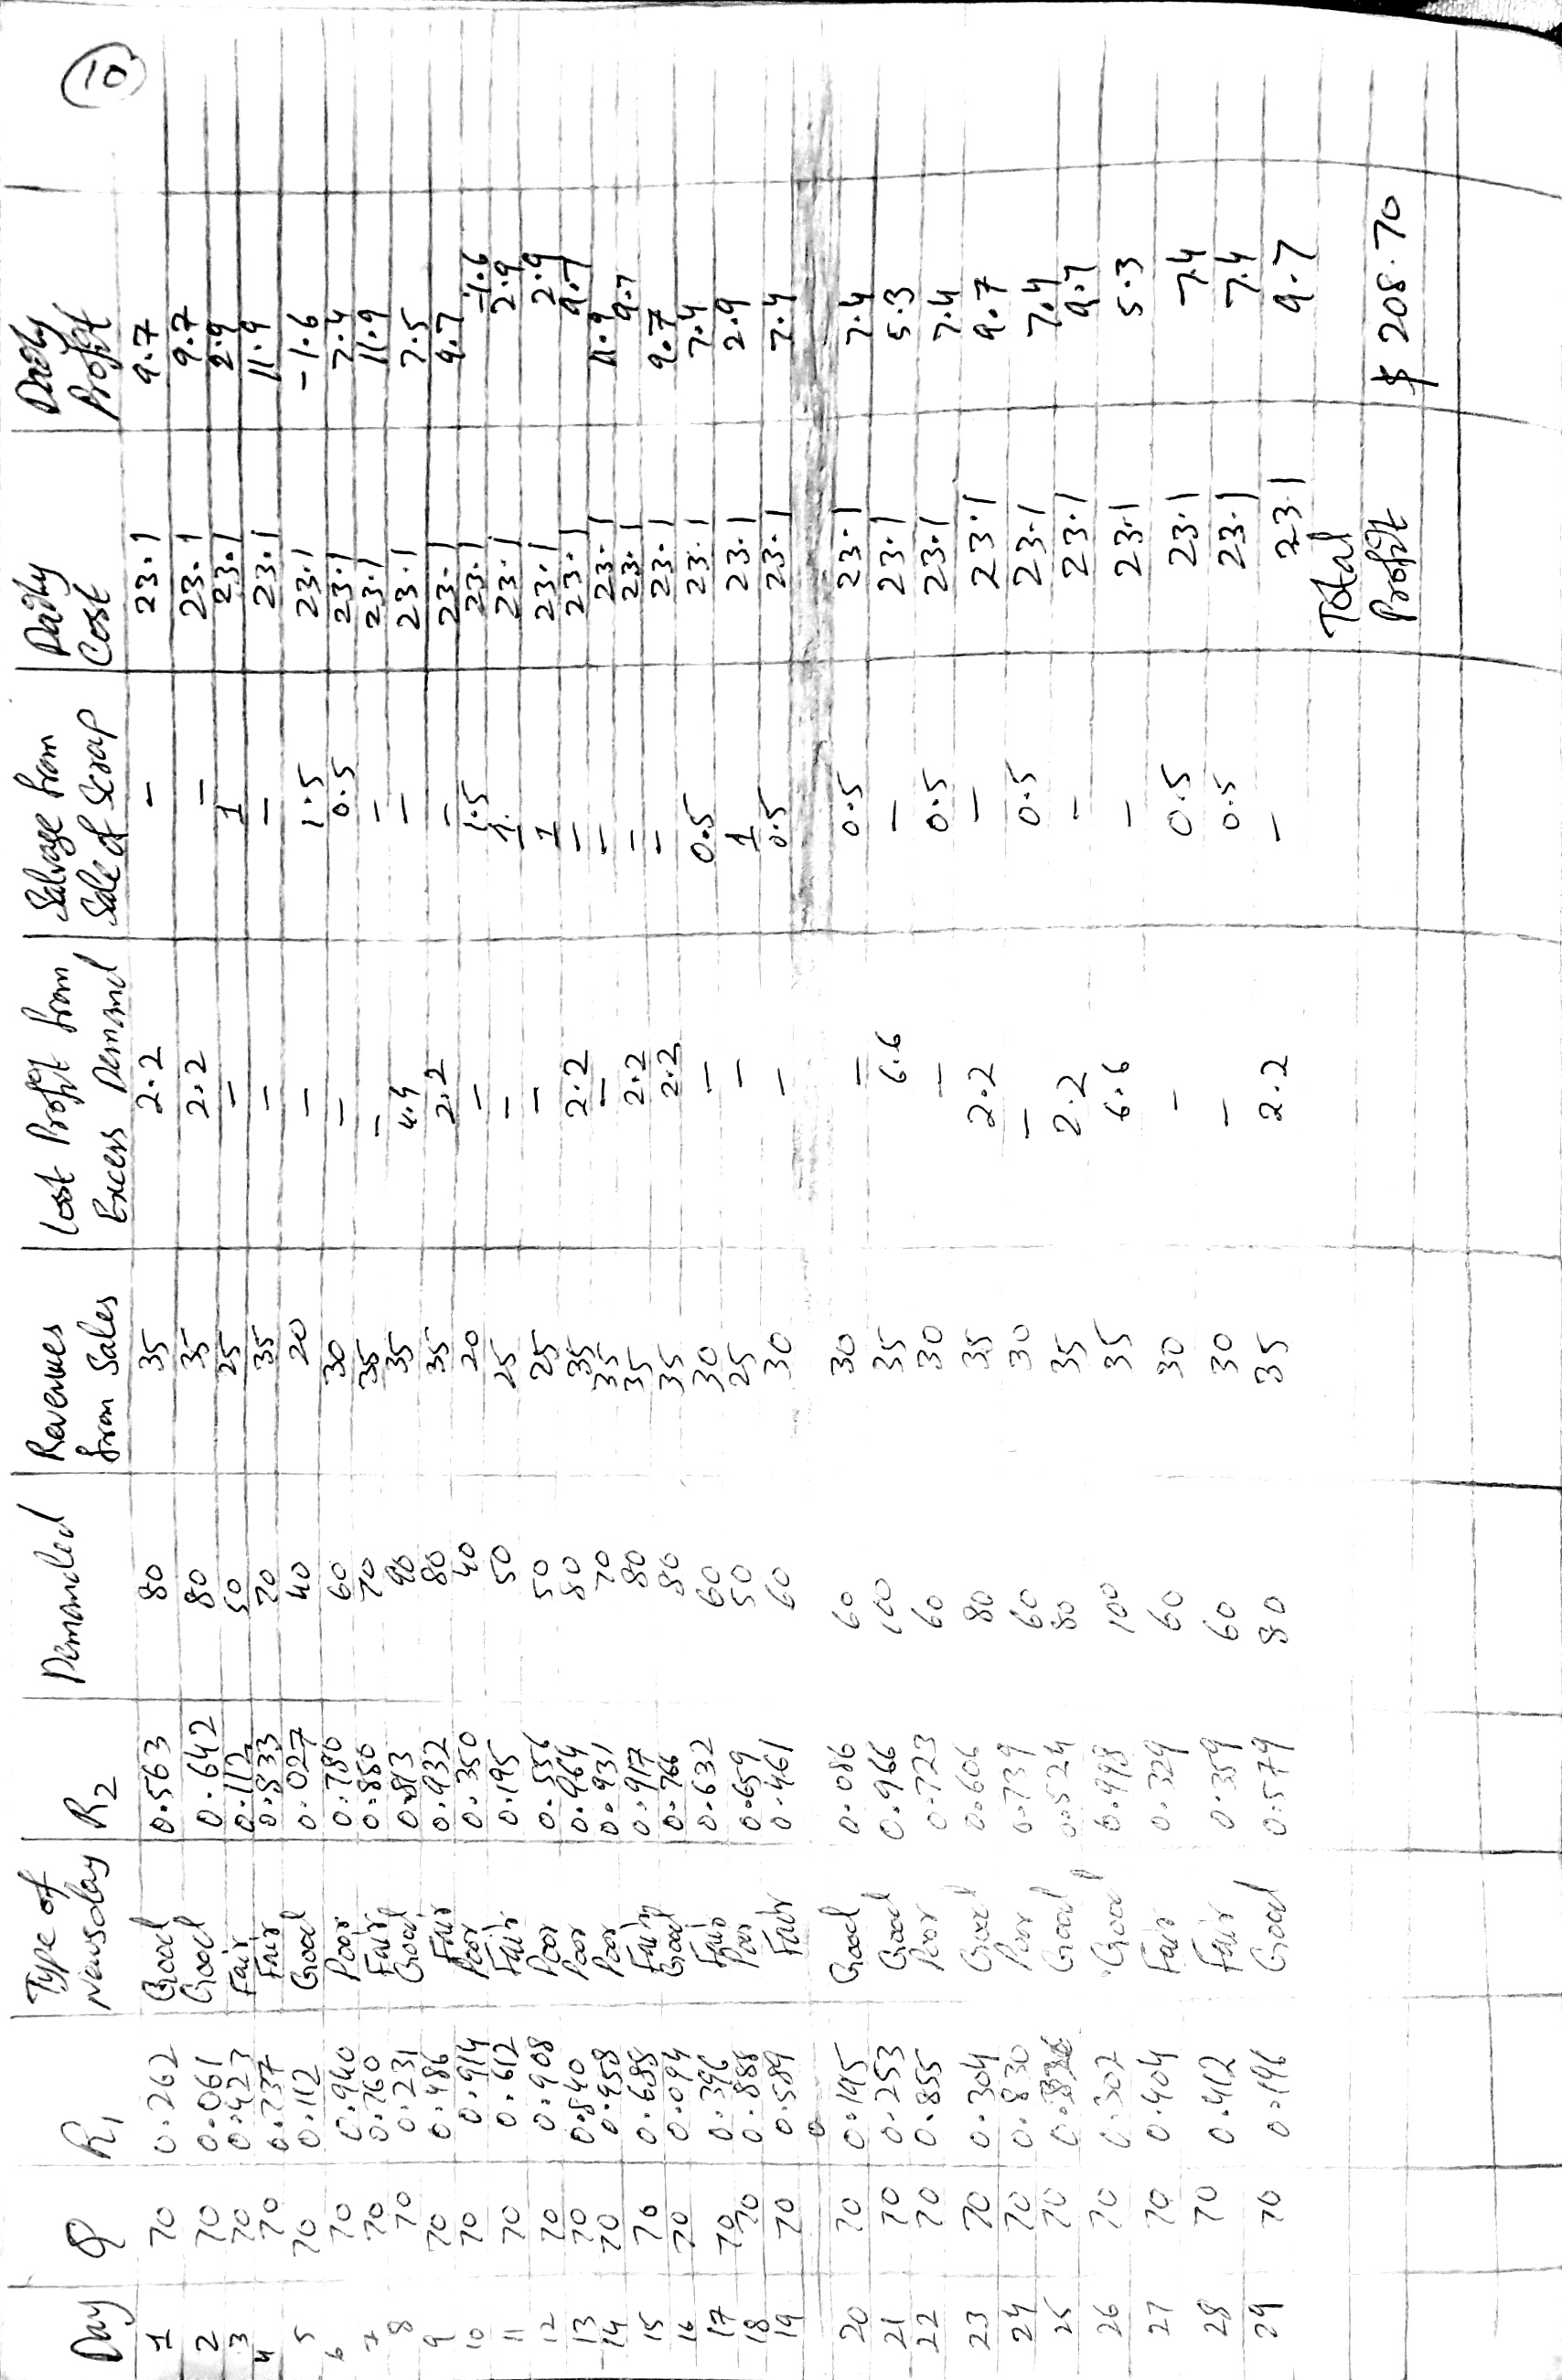 Day Q R1 Type of Newsday R2 Demanded Revenues from Sales Lost Profit from Excess Demand Salvage from Sale of Scrap Daily Cost Daily Profit 10
1 70 0.262 Good 0.563 80 35 2.2 - 23.1 9.7
2 70 0.061 Good 0.642 80 35 2.2 - 23.1 9.7
3 70 0.423 Fair 0.112 50 25 - 1 23.1 2.9
4 70 0.737 Fair 0.833 70 35 - - 23.1 11.9
5 70 0.112 Good 0.027 40 20 - 1.5 23.1 -1.6
6 70 0.940 Poor 0.780 60 30 - 0.5 23.1 7.4
7 70 0.760 Fair 0.850 70 35 - - 23.1 11.9
8 70 0.231 Good 0.813 90 35 4.4 - 23.1 7.5
9 70 0.486 Fair 0.932 80 35 2.2 - 23.1 9.7
10 70 0.914 Poor 0.350 40 20 - 1.5 23.1 -1.6
11 70 0.612 Fair 0.195 50 25 - 1. 23.1 2.9
12 70 0.908 Poor 0.556 50 25 - 1 23.1 2.9
13 70 0.840 Poor 0.964 80 35 2.2 - 23.1 9.7
14 70 0.958 Poor 0.931 70 35 - - 23.1 11.9
15 70 0.688 Fair 0.917 80 35 2.2 - 23.1 9.7
16 70 0.094 Good 0.766 80 35 2.2 - 23.1 9.7
17 70 0.396 Fair 0.632 60 30 - 0.5 23.1 7.4
18 70 0.888 Poor 0.659 50 25 - 1 23.1 2.9
19 70 0.589 Fair 0.461 60 30 - 0.5 23.1 7.4
20 70 0.195 Good 0.086 60 30 - 0.5 23.1 7.4
21 70 0.253 Good 0.966 100 35 6.6 - 23.1 5.3
22 70 0.855 Poor 0.723 60 30 - 0.5 23.1 7.4
23 70 0.304 Good 0.606 80 35 2.2 - 23.1 9.7
24 70 0.830 Poor 0.739 60 30 - 0.5 23.1 7.4
25 70 Good 0.524 80 35 2.2 - 23.1 9.7
26 70 0.302 Good 0.998 100 35 6.6 - 23.1 5.3
27 70 0.404 Fair 0.329 60 30 - 0.5 23.1 7.4
28 70 0.412 Fair 0.359 60 30 - 0.5 23.1 7.4
29 70 0.196 Good 0.579 80 35 2.2 - 23.1 9.7
Total
Profit $ 208.70